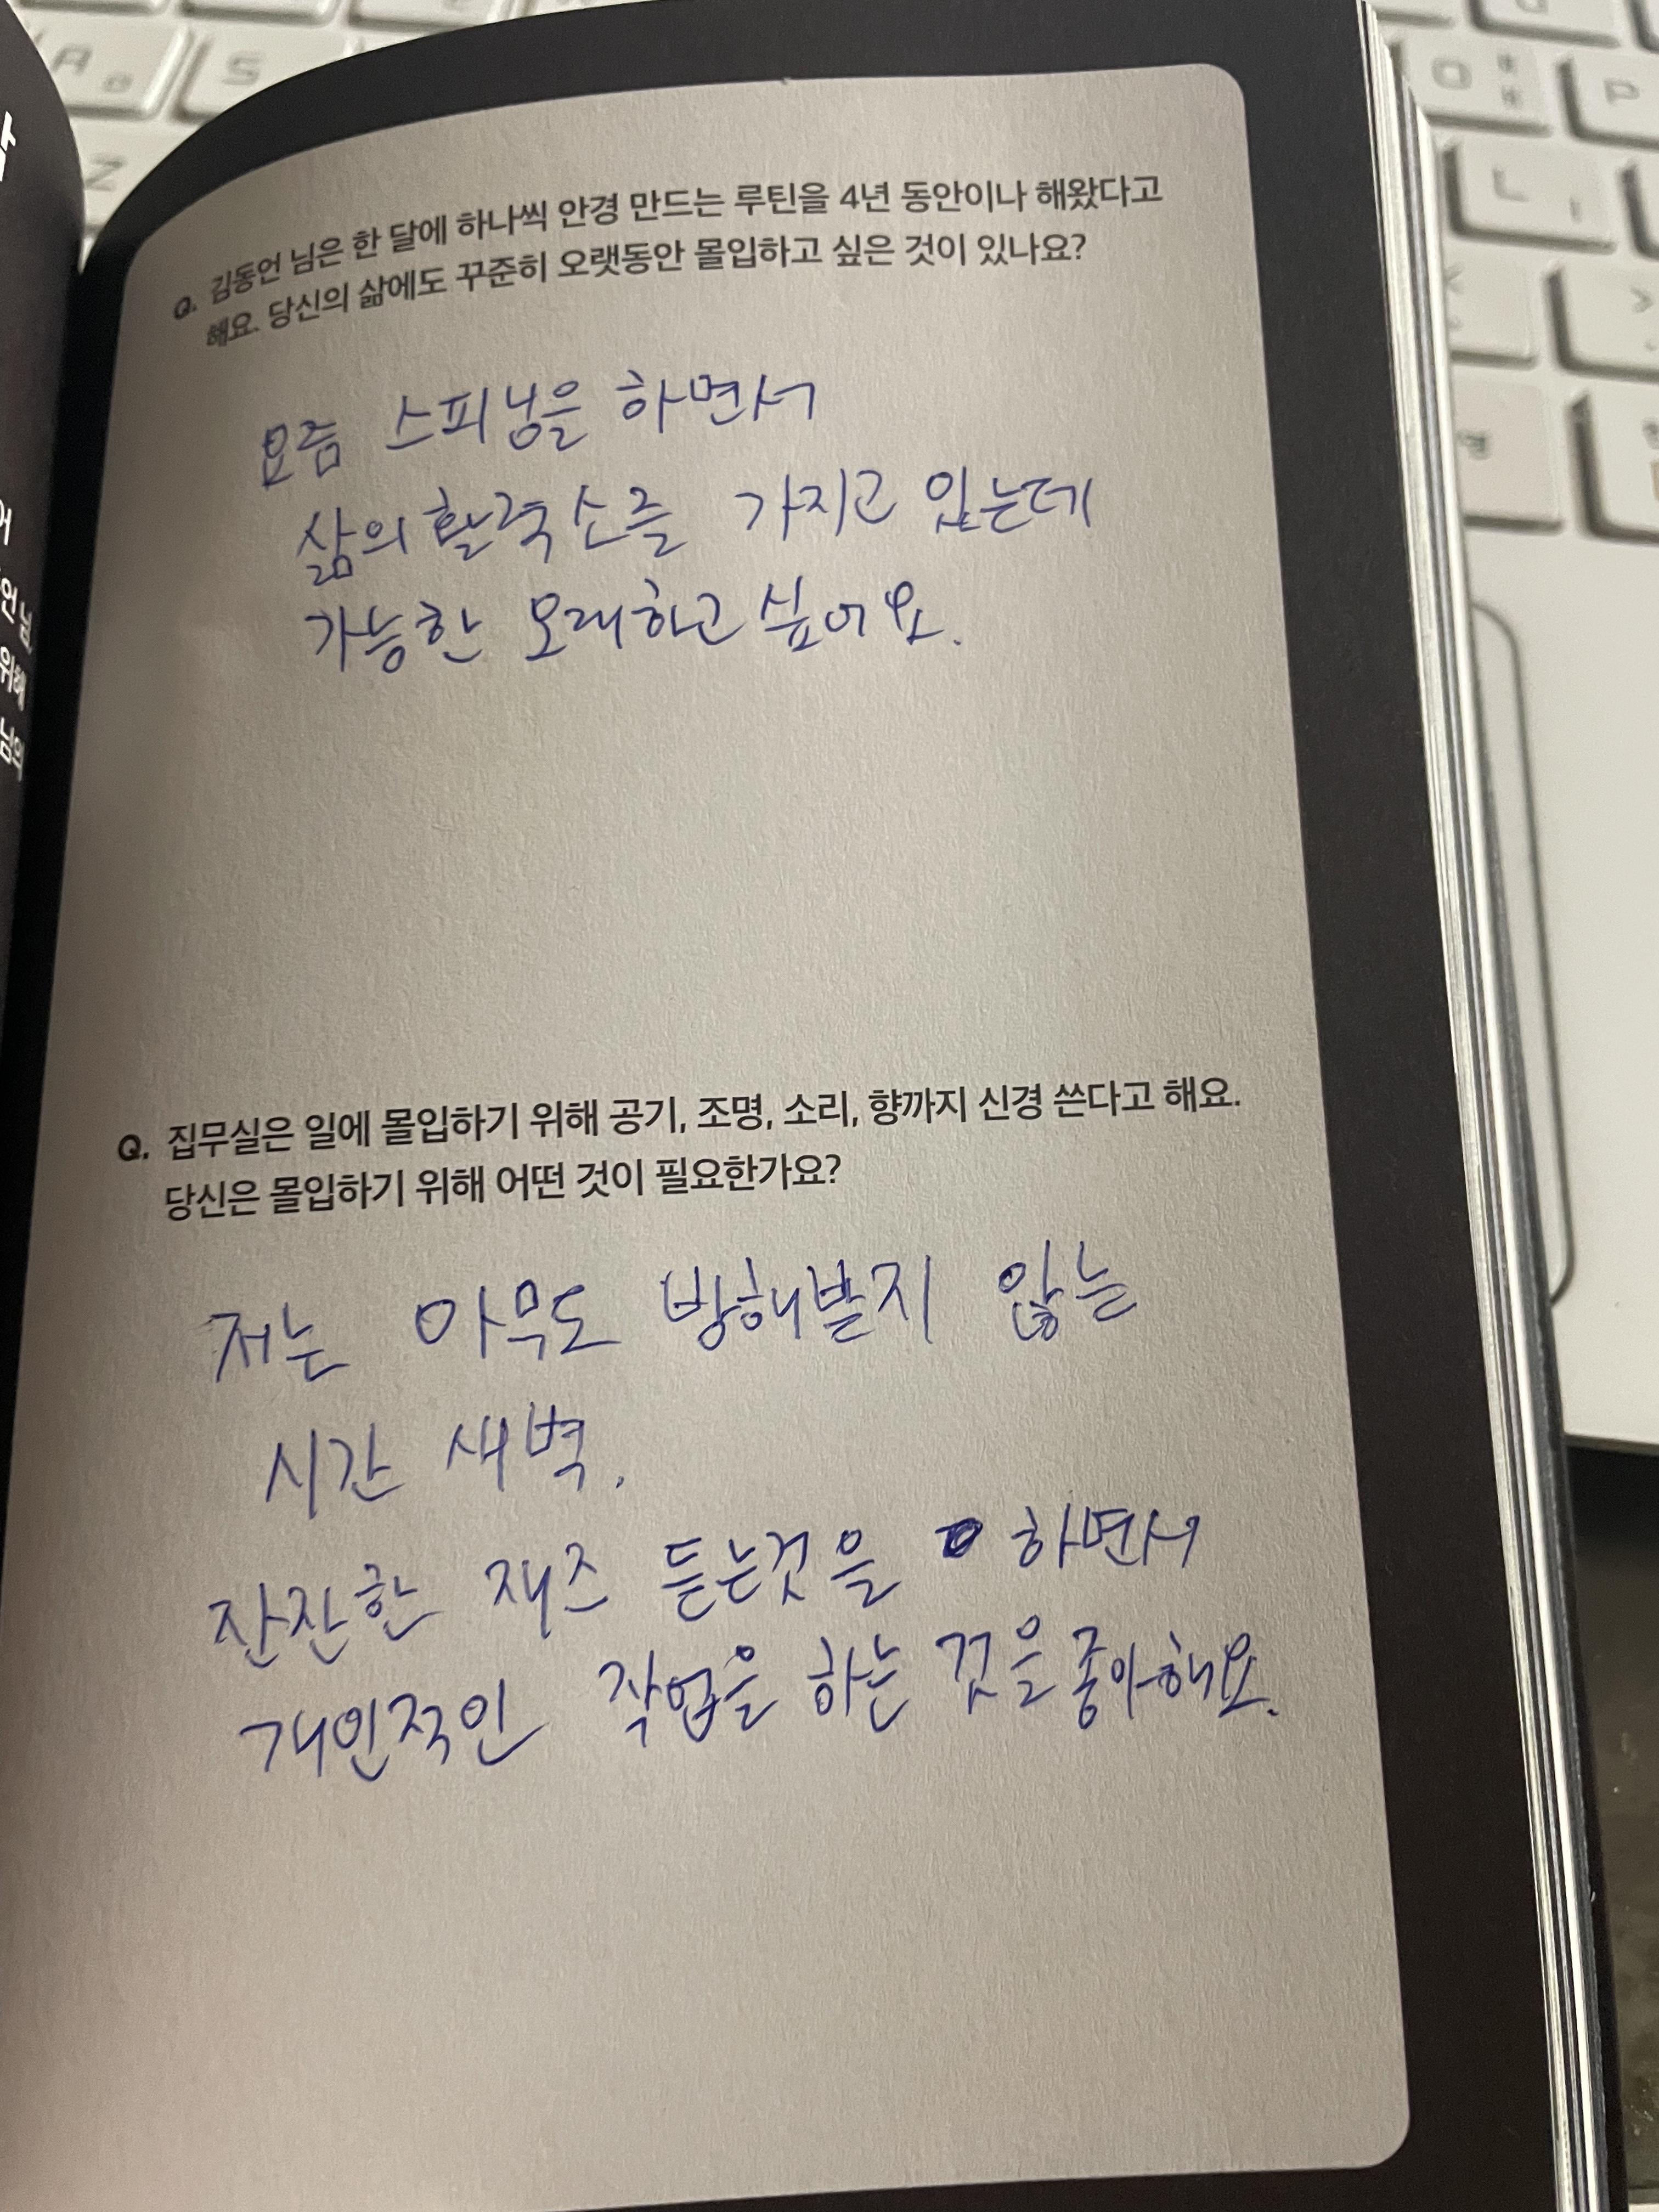 Q. 김동언 님은 한 달에 하나씩 안경 만드는 루틴을 4년 동안이나 해왔다고
해요. 당신의 삶에도 꾸준히 오랫동안 몰입하고 싶은 것이 있나요?
요즘 스피닝을 하면서
삶의 활력소를 가지고 있는데
가능한 오래하고 싶어요.
Q. 집무실은 일에 몰입하기 위해 공기, 조명, 소리, 향까지 신경 쓴다고 해요.
당신은 몰입하기 위해 어떤 것이 필요한가요?
저는 아무도 방해받지 않는
시간 새벽.
잔잔한 재즈 듣는것을 하면서
개인적인 작업을 하는 것을 좋아해요.